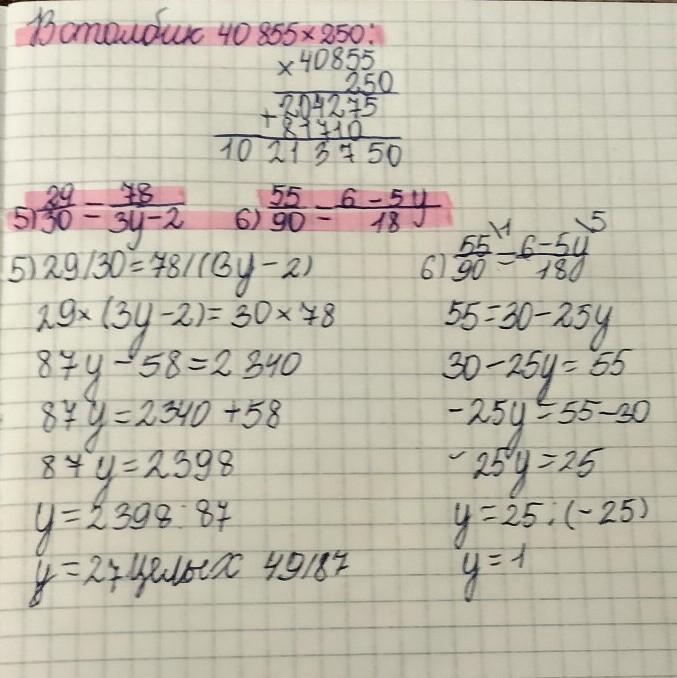 В столбик 40 855×250:
×40855
250
+204275
81710
10 21 3 7 50
5) 29/30 = 78/3y-2 6) 55/90 = 6-5y/18
5) 29/30=78/(3y-2)
29×(3y-2)=30×78
87y-58=2340
87y=2340+58
87y=2398
y=2398:87
y=27целых 49/87
6) 55\1/90 = 6-5y\5/18y
55=30-25y
30-25y=55
-25y=55-30
-25y=25
y=25:(-25)
y=1